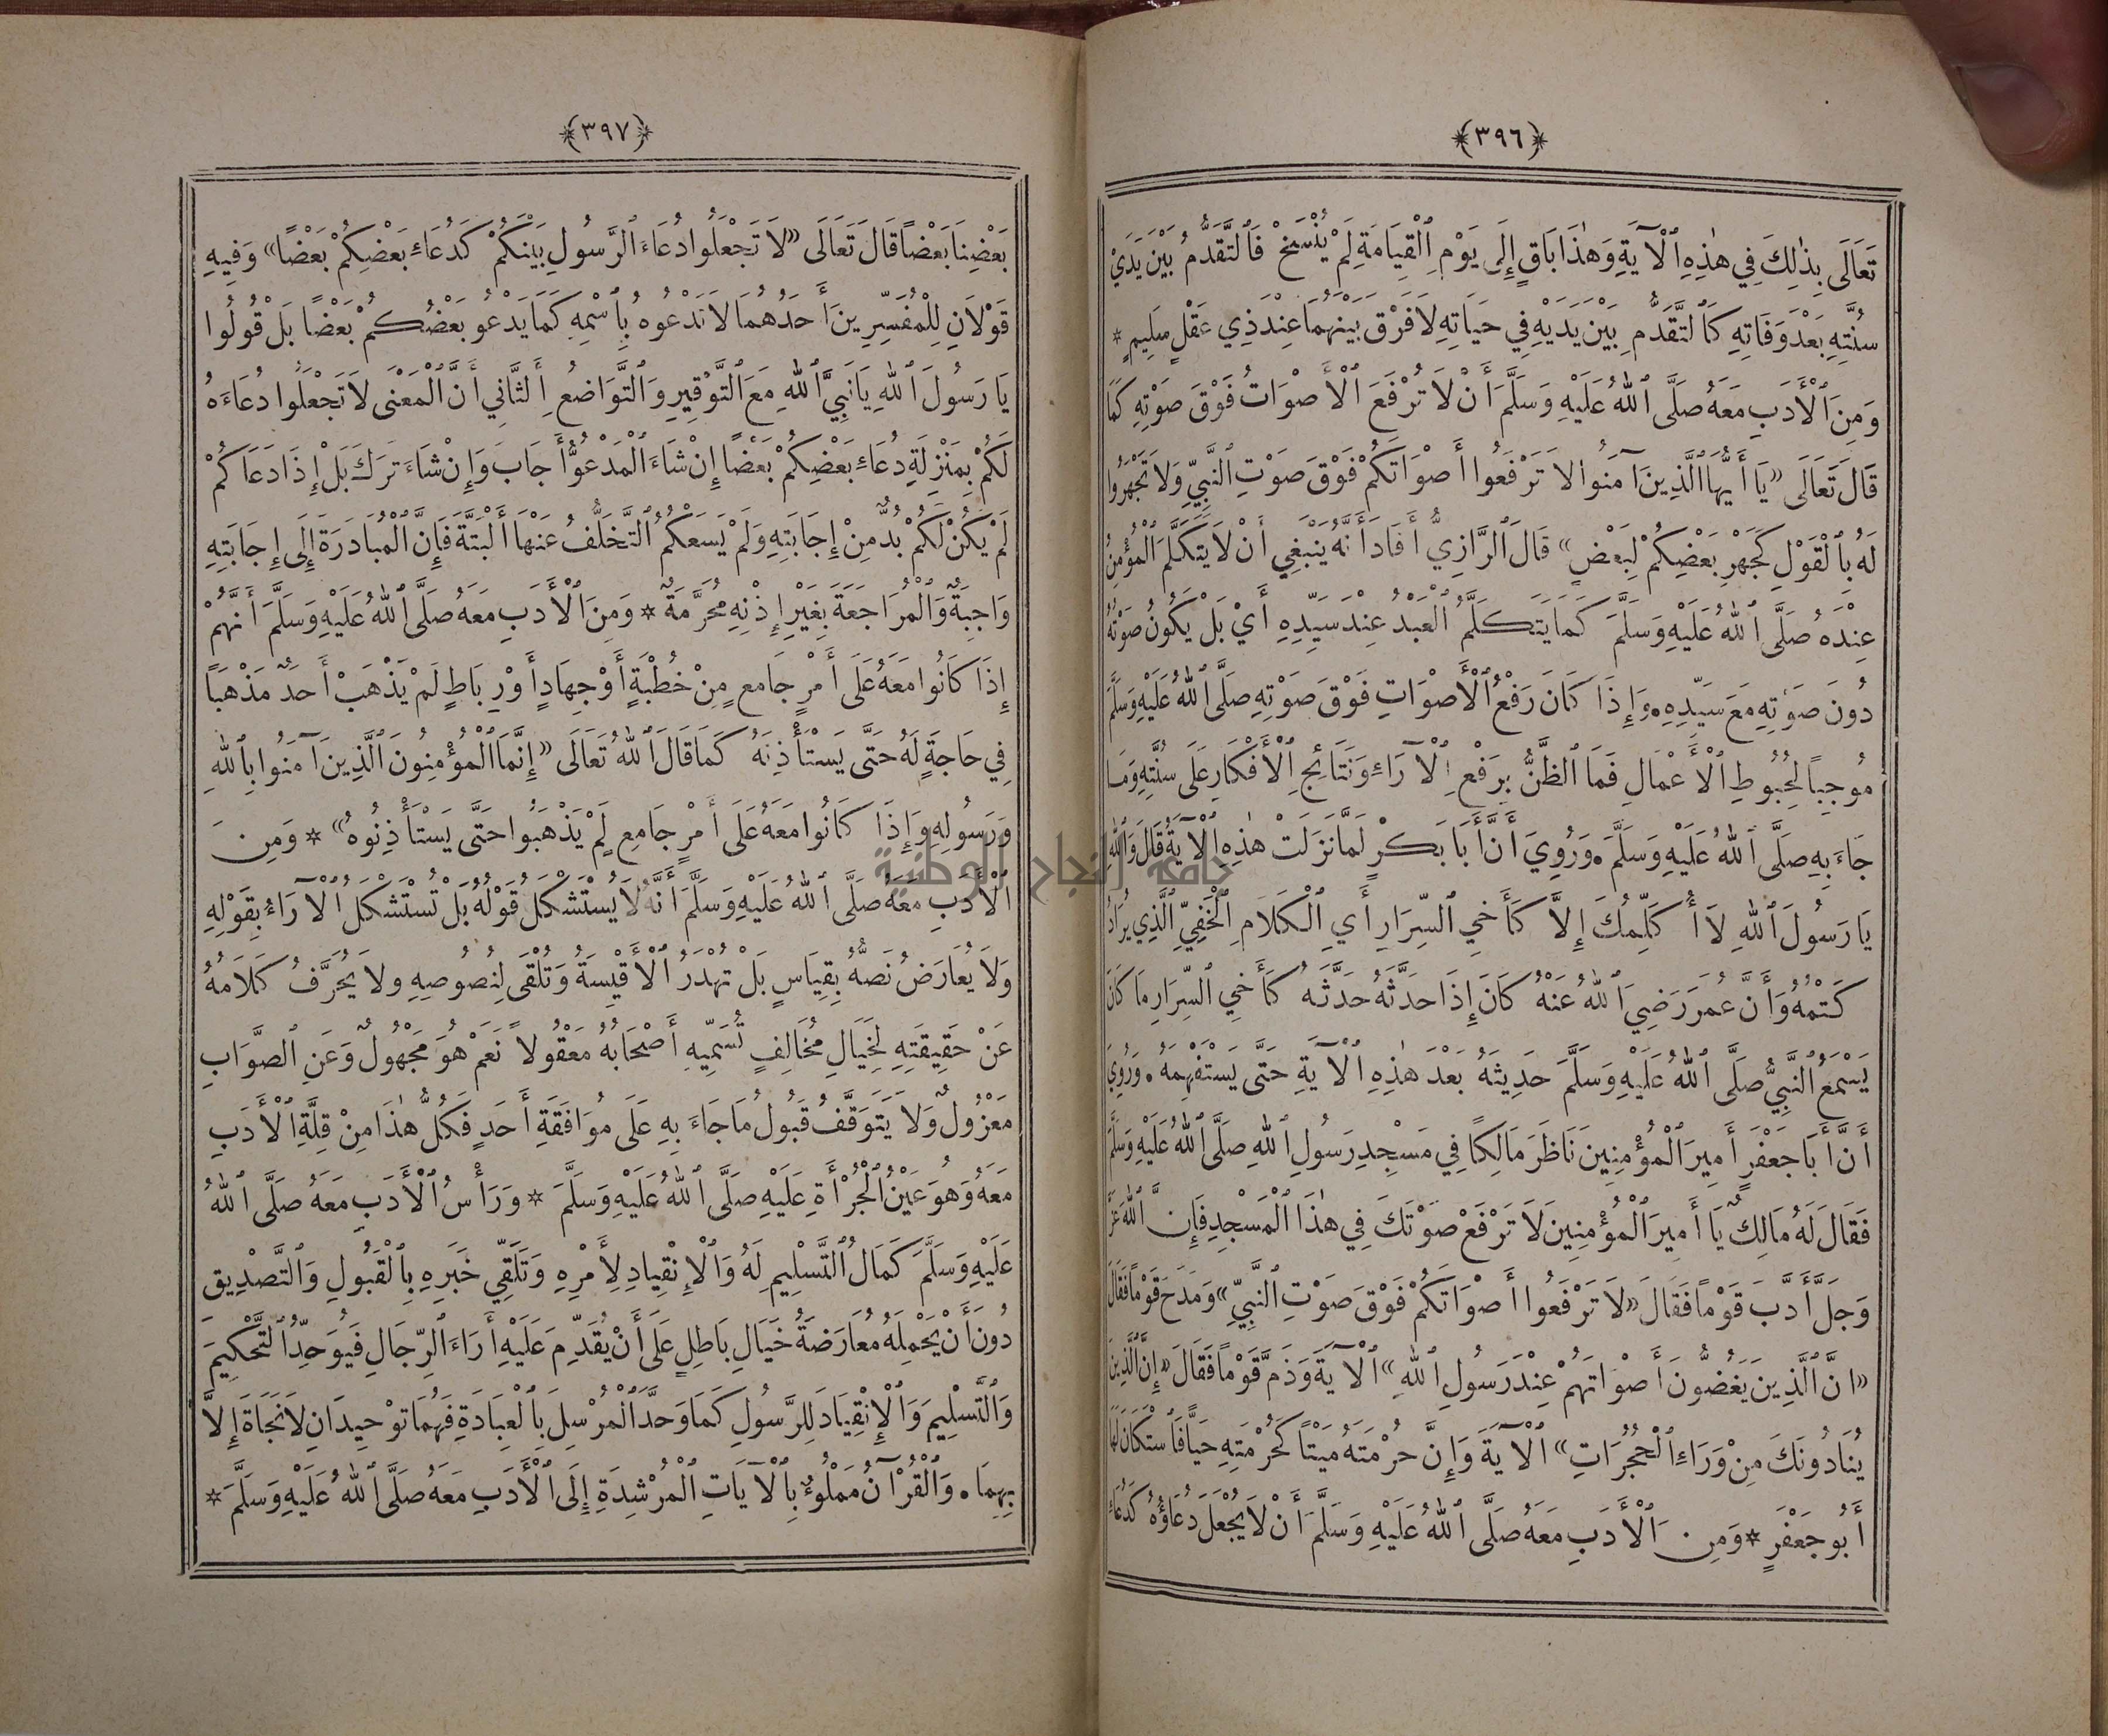 ﴿٣٩٦﴾
تَعَالَى بِذٰلِكَ فِي هٰذِهِ ٱلْآيَةِ وَهٰذَا بَاقٍ إِلَى يَوْمِ ٱلْقِيَامَةِ لَمْ يُنْسَخْ فَٱلتَّقَدُّمُ بَيْنَ يَدَيْ
سُنَّتِهِ بَعْدَ وَفَاتِهِ كَٱلتَّقَدُّمِ بَيْنَ يَدَيْهِ فِي حَيَاتِهِ لَا فَرْقَ بَيْنَهُمَا عِنْدَ ذِي عَقْلٍ سَلِيمٍ *
وَمِنَ ٱلْأَدَبِ مَعَهُ صَلَّى ٱللهُ عَلَيْهِ وَسَلَّمَ أَنْ لَا تُرْفَعَ ٱلْأَصْوَاتُ فَوْقَ صَوْتِهِ كَمَا
قَالَ تَعَالَى «يَا أَيُّهَا ٱلَّذِينَ آمَنُوا لَا تَرْفَعُوا أَصْوَاتَكُمْ فَوْقَ صَوْتِ ٱلنَّبِيِّ وَلَا تَجْهَرُوا
لَهُ بِٱلْقَوْلِ كَجَهْرِ بَعْضِكُمْ لِبَعْضٍ» قَالَ ٱلرَّازِيُّ أَفَادَ أَنَّهُ يَنْبَغِي أَنْ لَا يَتَكَلَّمَ ٱلْمُؤْمِنُ
عِنْدَهُ صَلَّى ٱللهُ عَلَيْهِ وَسَلَّمَ كَمَا يَتَكَلَّمُ ٱلْعَبْدُ عِنْدَ سَيِّدِهِ أَيْ بَلْ يَكُونُ صَوْتُهُ
دُونَ صَوْتِهِ مَعَ سَيِّدِهِ. وَإِذَا كَانَ رَفْعُ ٱلْأَصْوَاتِ فَوْقَ صَوْتِهِ صَلَّى ٱللهُ عَلَيْهِ وَسَلَّمَ
مُوجِبًا لِحُبُوطِ ٱلْأَعْمَالِ فَمَا ٱلظَّنُّ بِرَفْعِ ٱلْآرَاءِ وَنَتَائِجِ ٱلْأَفْكَارِ عَلَى سُنَّتِهِ وَمَا
جَاءَ بِهِ صَلَّى ٱللهُ عَلَيْهِ وَسَلَّمَ. وَرُوِيَ أَنَّ أَبَا بَكْرٍ لَمَّا نَزَلَتْ هٰذِهِ ٱلْآيَةُ قَالَ وَٱللهِ
يَا رَسُولَ ٱللهِ لَا أُكَلِّمُكَ إِلَّا كَأَخِي ٱلسِّرَارِ أَيِ ٱلْكَلَامِ ٱلْخَفِيِّ ٱلَّذِي يُرَادُ
كَتْمُهُ وَأَنَّ عُمَرَ رَضِيَ ٱللهُ عَنْهُ كَانَ إِذَا حَدَّثَهُ حَدَّثَهُ كَأَخِي ٱلسِّرَارِ مَا كَانَ
يَسْمَعُ ٱلنَّبِيُّ صَلَّى ٱللهُ عَلَيْهِ وَسَلَّمَ حَدِيثَهُ بَعْدَ هٰذِهِ ٱلْآيَةِ حَتَّى يَسْتَفْهِمَهُ. وَرُوِيَ
أَنَّ أَبَا جَعْفَرٍ أَمِيرَ ٱلْمُؤْمِنِينَ نَاظَرَ مَالِكًا فِي مَسْجِدِ رَسُولِ ٱللهِ صَلَّى ٱللهُ عَلَيْهِ وَسَلَّمَ
فَقَالَ لَهُ مَالِكٌ يَا أَمِيرَ ٱلْمُؤْمِنِينَ لَا تَرْفَعْ صَوْتَكَ فِي هٰذَا ٱلْمَسْجِدِ فَإِنَّ ٱللهَ عَزَّ
وَجَلَّ أَدَّبَ قَوْمًا فَقَالَ «لَا تَرْفَعُوا أَصْوَاتَكُمْ فَوْقَ صَوْتِ ٱلنَّبِيِّ» وَمَدَحَ قَوْمًا فَقَالَ
«انَّ ٱلَّذِينَ يَغُضُّونَ أَصْوَاتَهُمْ عِنْدَ رَسُولِ ٱللهِ» ٱلْآيَةَ وَذَمَّ قَوْمًا فَقَالَ «إِنَّ ٱلَّذِينَ
يُنَادُونَكَ مِنْ وَرَاءِ ٱلْحُجُرَاتِ» ٱلْآيَةَ وَإِنَّ حُرْمَتَهُ مَيْتًا كَحُرْمَتِهِ حَيًّا فَٱسْتَكَانَ لَهَا
أَبُو جَعْفَرٍ * وَمِنَ ٱلْأَدَبِ مَعَهُ صَلَّى ٱللهُ عَلَيْهِ وَسَلَّمَ أَنْ لَا يُجْعَلَ دُعَاؤُهُ كَدُعَاءِ
﴿٣٩٧﴾
بَعْضِنَا بَعْضًا قَالَ تَعَالَى «لَا تَجْعَلُوا دُعَاءَ ٱلرَّسُولِ بَيْنَكُمْ كَدُعَاءِ بَعْضِكُمْ بَعْضًا» وَفِيهِ
قَوْلَانِ لِلْمُفَسِّرِينَ أَحَدُهُمَا لَا تَدْعُوهُ بِٱسْمِهِ كَمَا يَدْعُو بَعْضُكُمْ بَعْضًا بَلْ قُولُوا
يَا رَسُولَ ٱللهِ يَا نَبِيَّ ٱللهِ مَعَ ٱلتَّوْقِيرِ وَٱلتَّوَاضُعِ ٱلثَّانِي أَنَّ ٱلْمَعْنَى لَا تَجْعَلُوا دُعَاءَهُ
لَكُمْ بِمَنْزِلَةِ دُعَاءِ بَعْضِكُمْ بَعْضًا إِنْ شَاءَ ٱلْمَدْعُوُّ أَجَابَ وَإِنْ شَاءَ تَرَكَ بَلْ إِذَا دَعَاكُمْ
لَمْ يَكُنْ لَكُمْ بُدٌّ مِنْ إِجَابَتِهِ وَلَمْ يَسَعْكُمُ ٱلتَّخَلُّفُ عَنْهَا أَلْبَتَّةَ فَإِنَّ ٱلْمُبَادَرَةَ إِلَى إِجَابَتِهِ
وَاجِبَةٌ وَٱلْمُرَاجَعَةَ بِغَيْرِ إِذْنِهِ مُحَرَّمَةٌ * وَمِنَ ٱلْأَدَبِ مَعَهُ صَلَّى ٱللهُ عَلَيْهِ وَسَلَّمَ أَنَّهُمْ
إِذَا كَانُوا مَعَهُ عَلَى أَمْرٍ جَامِعٍ مِنْ خُطْبَةٍ أَوْ جِهَادٍ أَوْ رِبَاطٍ لَمْ يَذْهَبْ أَحَدٌ مَذْهَبًا
فِي حَاجَةٍ لَهُ حَتَّى يَسْتَأْذِنَهُ كَمَا قَالَ ٱللهُ تَعَالَى «إِنَّمَا ٱلْمُؤْمِنُونَ ٱلَّذِينَ آمَنُوا بِٱللهِ
وَرَسُولِهِ وَإِذَا كَانُوا مَعَهُ عَلَى أَمْرٍ جَامِعٍ لَمْ يَذْهَبُوا حَتَّى يَسْتَأْذِنُوهُ» * وَمِنَ
ٱلْأَدَبِ مَعَهُ صَلَّى ٱللهُ عَلَيْهِ وَسَلَّمَ أَنَّهُ لَا يُسْتَشْكَلُ قَوْلُهُ بَلْ تُسْتَشْكَلُ ٱلْآرَاءُ بِقَوْلِهِ
وَلَا يُعَارَضُ نَصُّهُ بِقِيَاسٍ بَلْ تُهْدَرُ ٱلْأَقْيِسَةُ وَتُلْقَى لِنُصُوصِهِ وَلَا يُحَرَّفُ كَلَامُهُ
عَنْ حَقِيقَتِهِ لِخَيَالٍ مُخَالِفٍ تُسَمِّيهِ أَصْحَابُهُ مَعْقُولًا نَعَمْ هُوَ مَجْهُولٌ وَعَنِ ٱلصَّوَابِ
مَعْزُولٌ وَلَا يَتَوَقَّفُ قَبُولُ مَا جَاءَ بِهِ عَلَى مُوَافَقَةِ أَحَدٍ فَكُلُّ هٰذَا مِنْ قِلَّةِ ٱلْأَدَبِ
مَعَهُ وَهُوَ عَيْنُ ٱلْجُرْأَةِ عَلَيْهِ صَلَّى ٱللهُ عَلَيْهِ وَسَلَّمَ * وَرَأْسُ ٱلْأَدَبِ مَعَهُ صَلَّى ٱللهُ
عَلَيْهِ وَسَلَّمَ كَمَالُ ٱلتَّسْلِيمِ لَهُ وَٱلْإِنْقِيَادِ لِأَمْرِهِ وَتَلَقِّي خَبَرِهِ بِٱلْقَبُولِ وَٱلتَّصْدِيقِ
دُونَ أَنْ يَحْمِلَهُ مُعَارَضَةُ خَيَالٍ بَاطِلٍ عَلَى أَنْ يُقَدِّمَ عَلَيْهِ أَرَاءَ ٱلرِّجَالِ فَيُوَحِّدُ ٱلتَّحْكِيمَ
وَٱلتَّسْلِيمَ وَٱلْإِنْقِيَادَ لِلرَّسُولِ كَمَا وَحَّدَ ٱلْمُرْسِلَ بِٱلْعِبَادَةِ فَهُمَا تَوْحِيدَانِ لَا نَجَاةَ إِلَّا
بِهِمَا. وَٱلْقُرْآنُ مَمْلُوءٌ بِٱلْآيَاتِ ٱلْمُرْشِدَةِ إِلَى ٱلْأَدَبِ مَعَهُ صَلَّى ٱللهُ عَلَيْهِ وَسَلَّمَ *
جامعة النجاح الوطنية